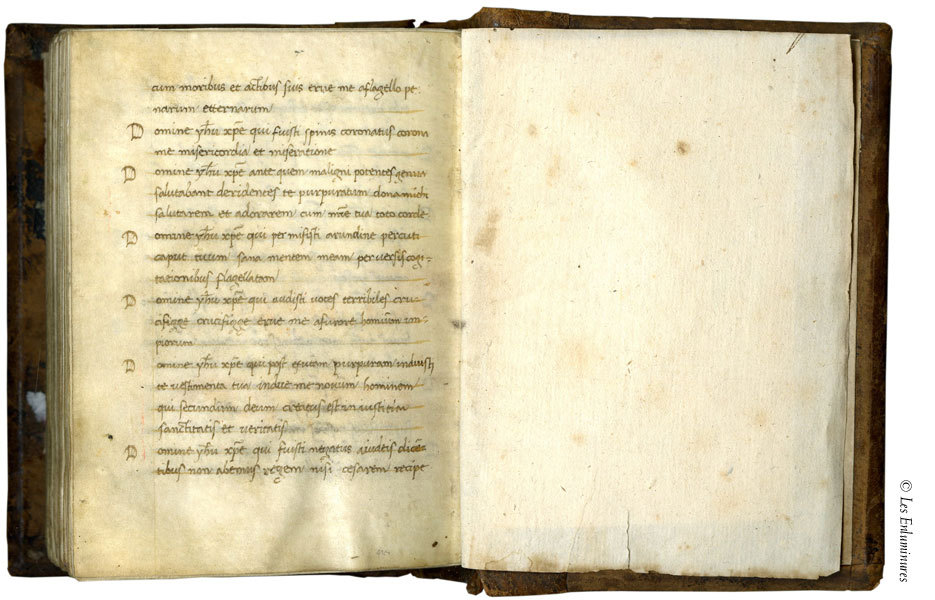 cum moribus et actibus suis erue me aflagello pe-
narum etternarum
Domine yhu xpe qui fuisti spinis coronatus corona
me misericordia et miseratione
Domine yhu xpe ante quem maligni potentes genua
salutabant deridentes te purpuratum dona michi
salutarem et adorarem cum mre tua toto corde
Domine yhu xpe qui permisisti arundine percuti
caput tuum sana mentem meam perversis cogi-
tacionibus flagellatam
Domine yhu xpe qui audisti voces terribiles cru-
cifigge crucifigge erue me afurore hominum im-
piorum
Domine yhu xpe qui post exutam purpuram induisti
te vestimenta tua indue me novum hominem
qui secundum deum creatus est in iustitia
sanctitatis et veritatis
Domine yhu xpe qui fuisti negatus iudeis dicen-
tibus non abemus regem nisi cesarem recipe
© Les Enluminures